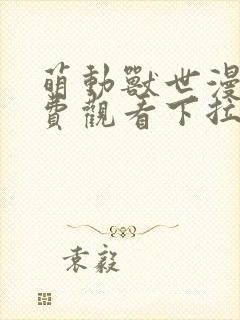 萌動獸世漫
費觀看下拉
袁毅